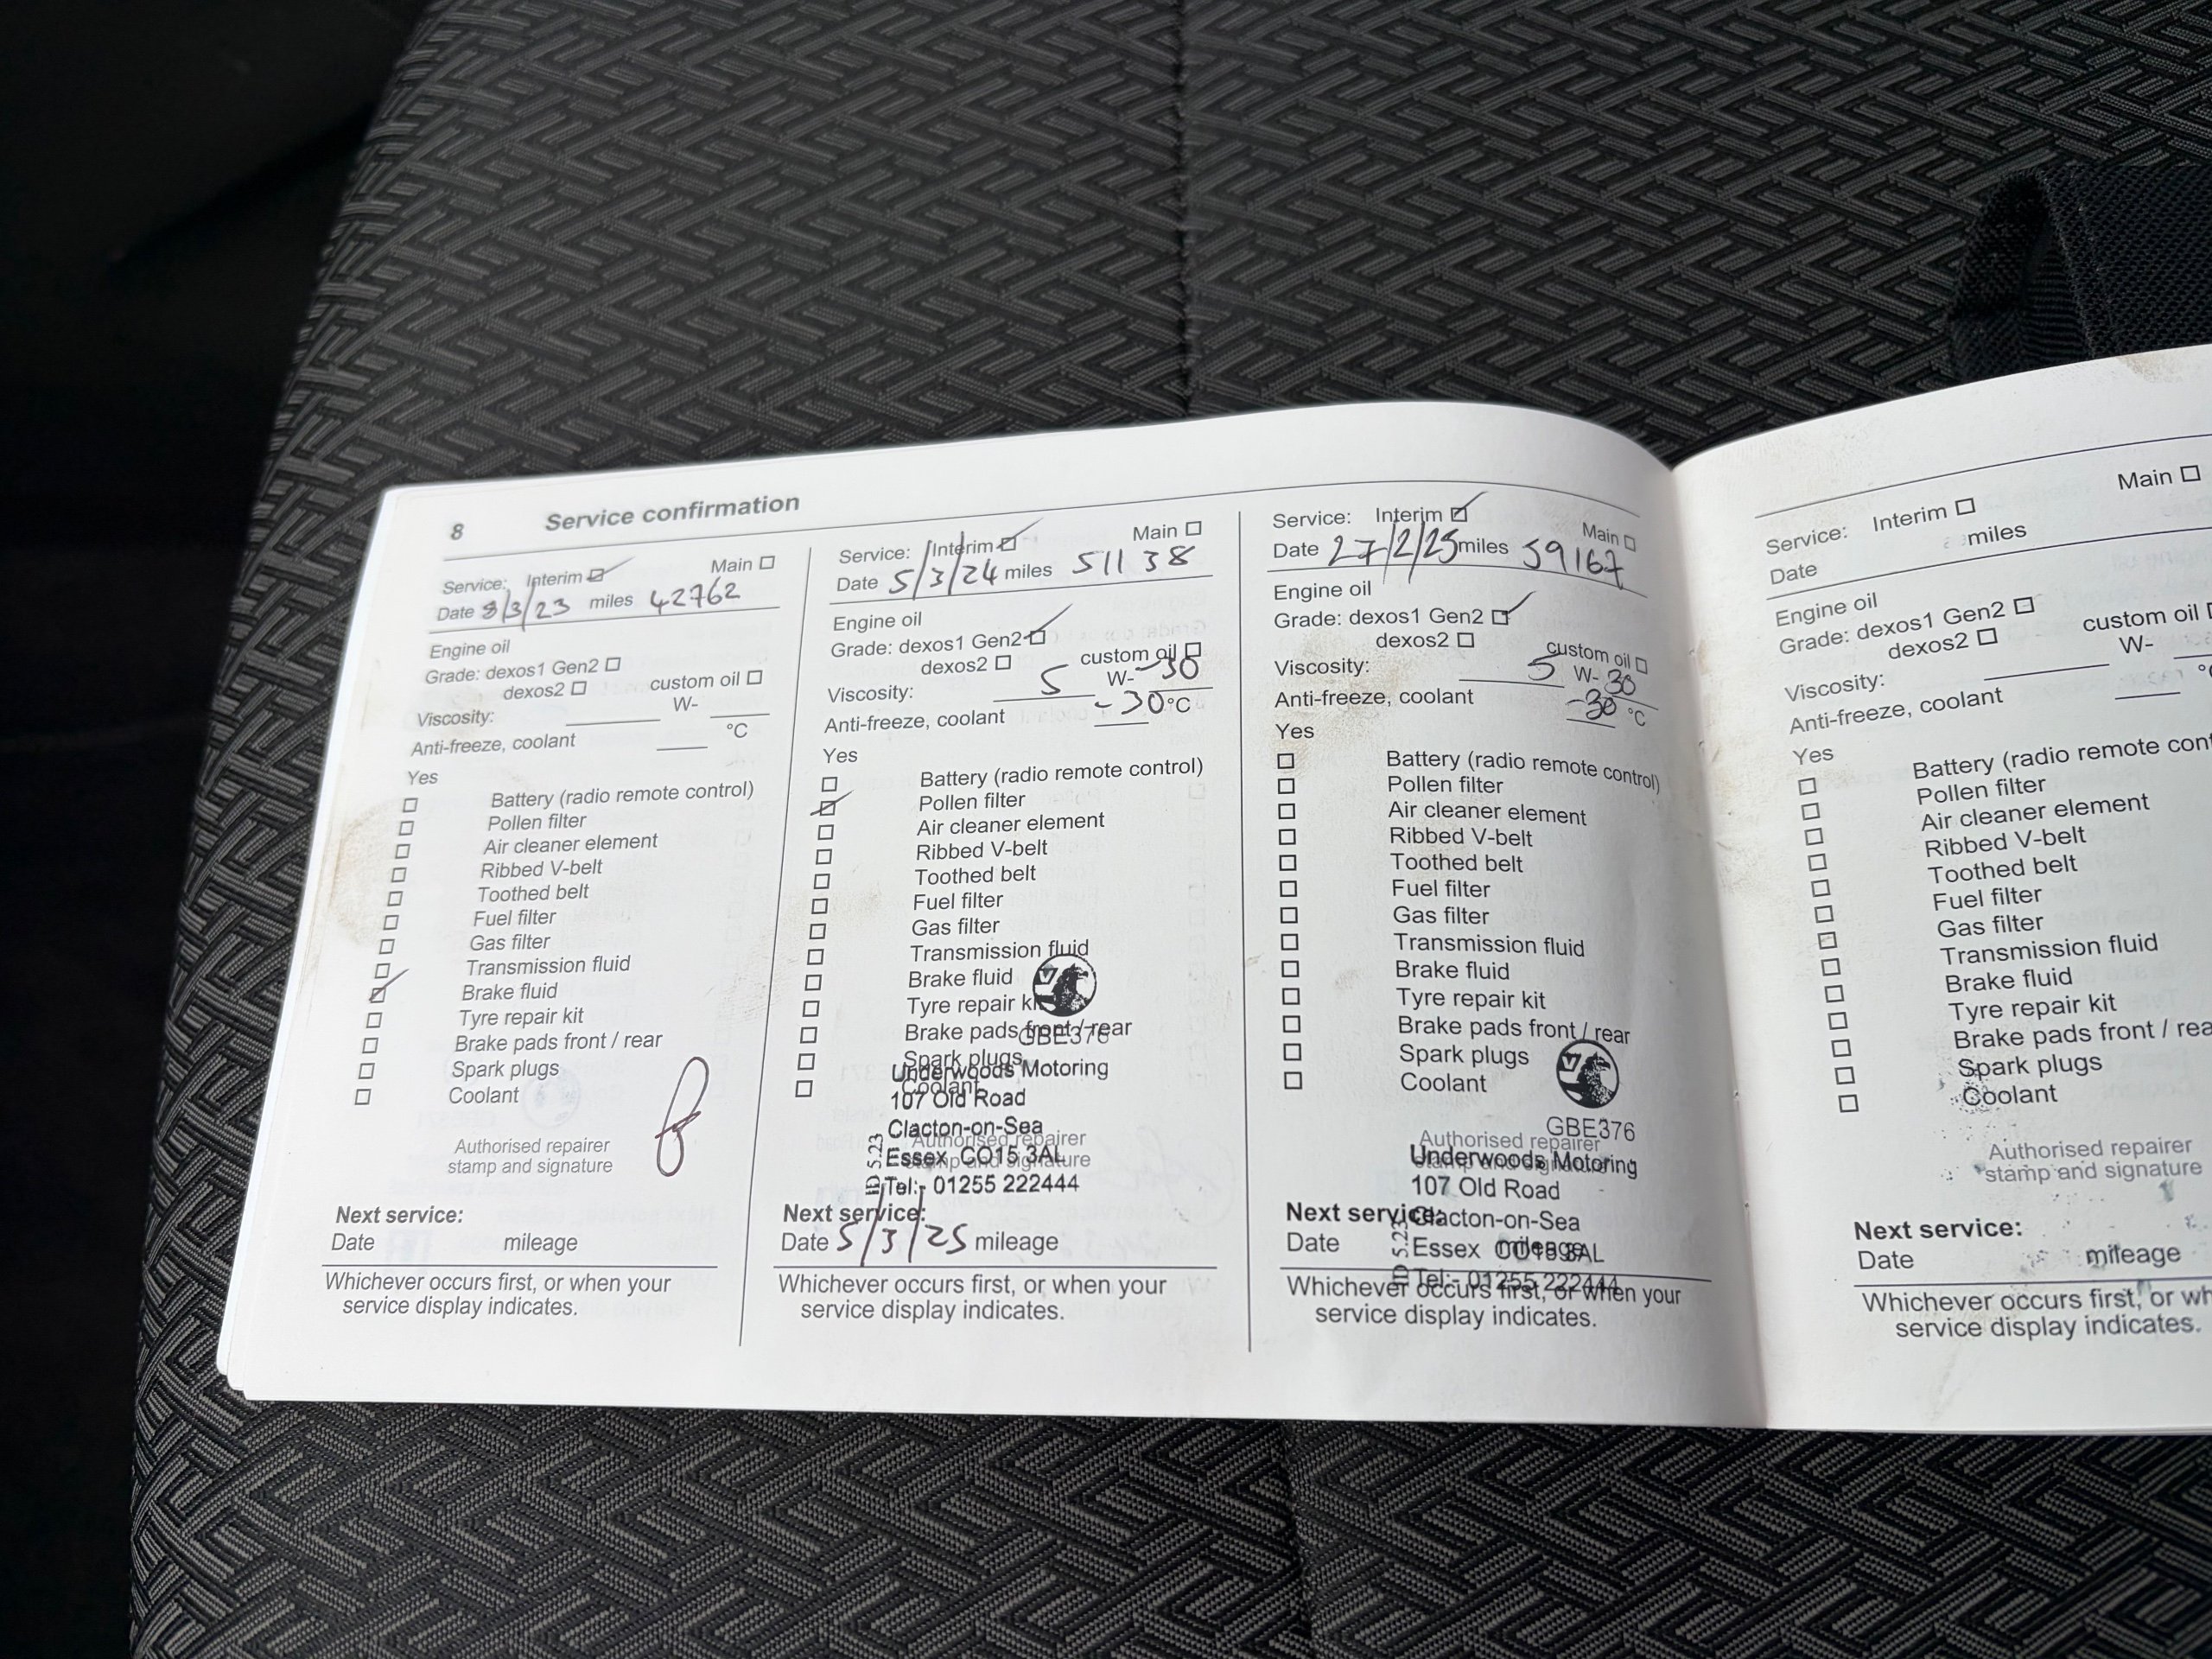 8 Service confirmation
Service: Interim Main
Date 8/3/23 miles 42762
Engine oil
Grade: dexos1 Gen2
dexos2 custom oil
Viscosity: W-
Anti-freeze, coolant °C
Yes
Battery (radio remote control)
Pollen filter
Air cleaner element
Ribbed V-belt
Toothed belt
Fuel filter
Gas filter
Transmission fluid
Brake fluid
Tyre repair kit
Brake pads front / rear
Spark plugs
Coolant
Authorised repairer
stamp and signature
Next service:
Date mileage
Whichever occurs first, or when your
service display indicates.
Service: Interim Main
Date 5/3/24 miles 51138
Engine oil
Grade: dexos1 Gen2
dexos2 custom oil
Viscosity: 5 W-30
Anti-freeze, coolant -30°C
Yes
Battery (radio remote control)
Pollen filter
Air cleaner element
Ribbed V-belt
Toothed belt
Fuel filter
Gas filter
Transmission fluid
Brake fluid
Tyre repair kit
Brake pads front / rear
GBE376
Spark plugs
Underwoods Motoring
Coolant
107 Old Road
Clacton-on-Sea
Authorised repairer
Essex CO15 3AL
stamp and signature
Tel:- 01255 222444
ID 5.23
Next service:
Date 5/3/25 mileage
Whichever occurs first, or when your
service display indicates.
Service: Interim Main
Date 27/2/25 miles 59167
Engine oil
Grade: dexos1 Gen2
dexos2 custom oil
Viscosity: 5 W-30
Anti-freeze, coolant -30 °C
Yes
Battery (radio remote control)
Pollen filter
Air cleaner element
Ribbed V-belt
Toothed belt
Fuel filter
Gas filter
Transmission fluid
Brake fluid
Tyre repair kit
Brake pads front / rear
Spark plugs
Coolant
GBE376
Authorised repairer
Underwoods Motoring
stamp and signature
107 Old Road
Next service:
Clacton-on-Sea
Date mileage
Essex CO15 3AL
Tel:- 01255 222444
ID 5.23
Whichever occurs first, or when your
service display indicates.
Service: Interim Main
Date miles
Engine oil
Grade: dexos1 Gen2
dexos2 custom oil
Viscosity: W-
Anti-freeze, coolant
Yes
Battery (radio remote
Pollen filter
Air cleaner element
Ribbed V-belt
Toothed belt
Fuel filter
Gas filter
Transmission fluid
Brake fluid
Tyre repair kit
Brake pads front /
Spark plugs
Coolant
Authorised repairer
stamp and signature
Next service:
Date mileage
Whichever occurs first, or
service display indicates.